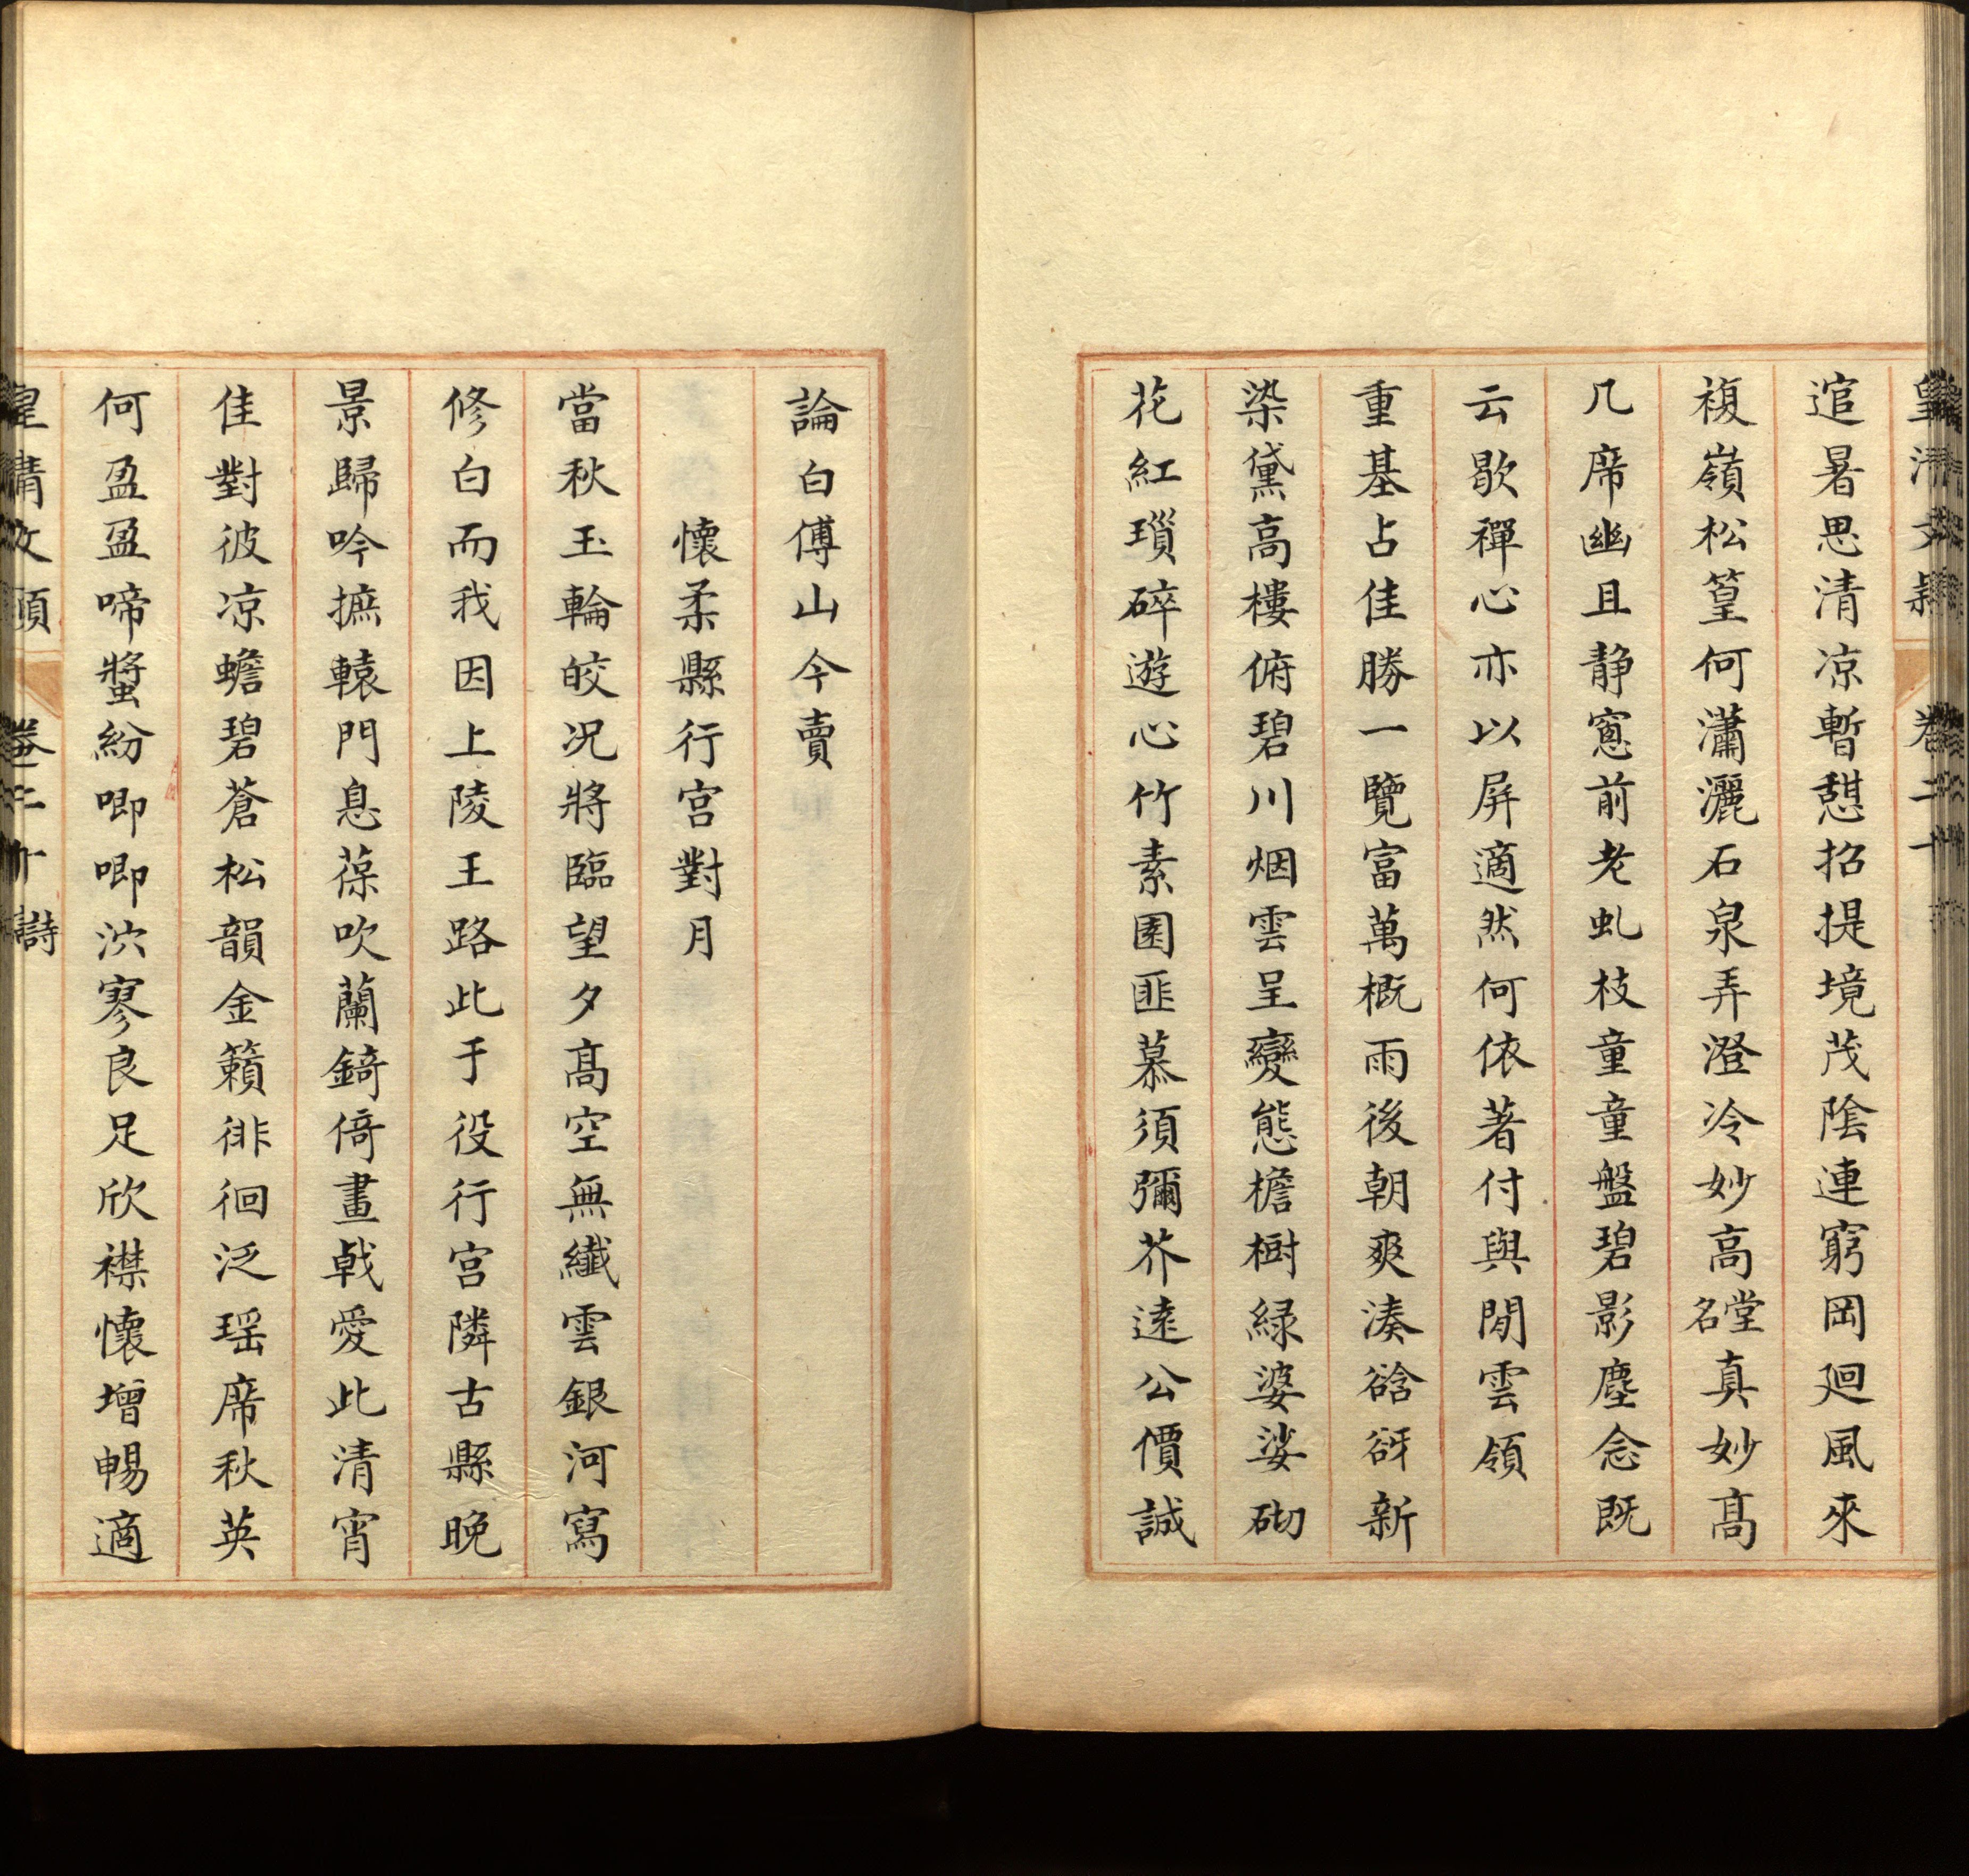 皇清文穎 卷二十
逭暑思清凉暫憇招提境茂陰連窮岡廻風來
複嶺松篁何瀟灑石泉弄澄冷妙高堂名真妙高
几席幽且静窻前老虬枝童童盤碧影塵念既
云歇禪心亦以屏適然何依著付與閒雲領
重基占佳勝一覽富萬概雨後朝爽湊谽谺新
染黛高樓俯碧川烟雲呈變態檐樹緑婆娑砌
花紅瑣碎遊心竹素園匪慕須彌芥遠公價誠
論白傅山今賣
懷柔縣行宫對月
當秋玉輪皎况將臨望夕高空無纖雲銀河寫
修白而我因上陵王路此于役行宫隣古縣晚
景歸吟摭轅門息葆吹蘭錡倚畫戟愛此清宵
佳對彼凉蟾碧蒼松韻金籟徘徊泛瑶席秋英
何盈盈啼螿紛唧唧泬寥良足欣襟懷增暢適
皇清文穎 卷二十 詩